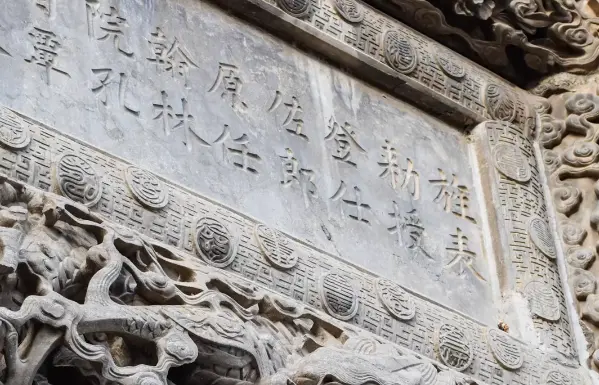 旌表
勅授
登仕
佐郎
原任
翰林
院孔
覃